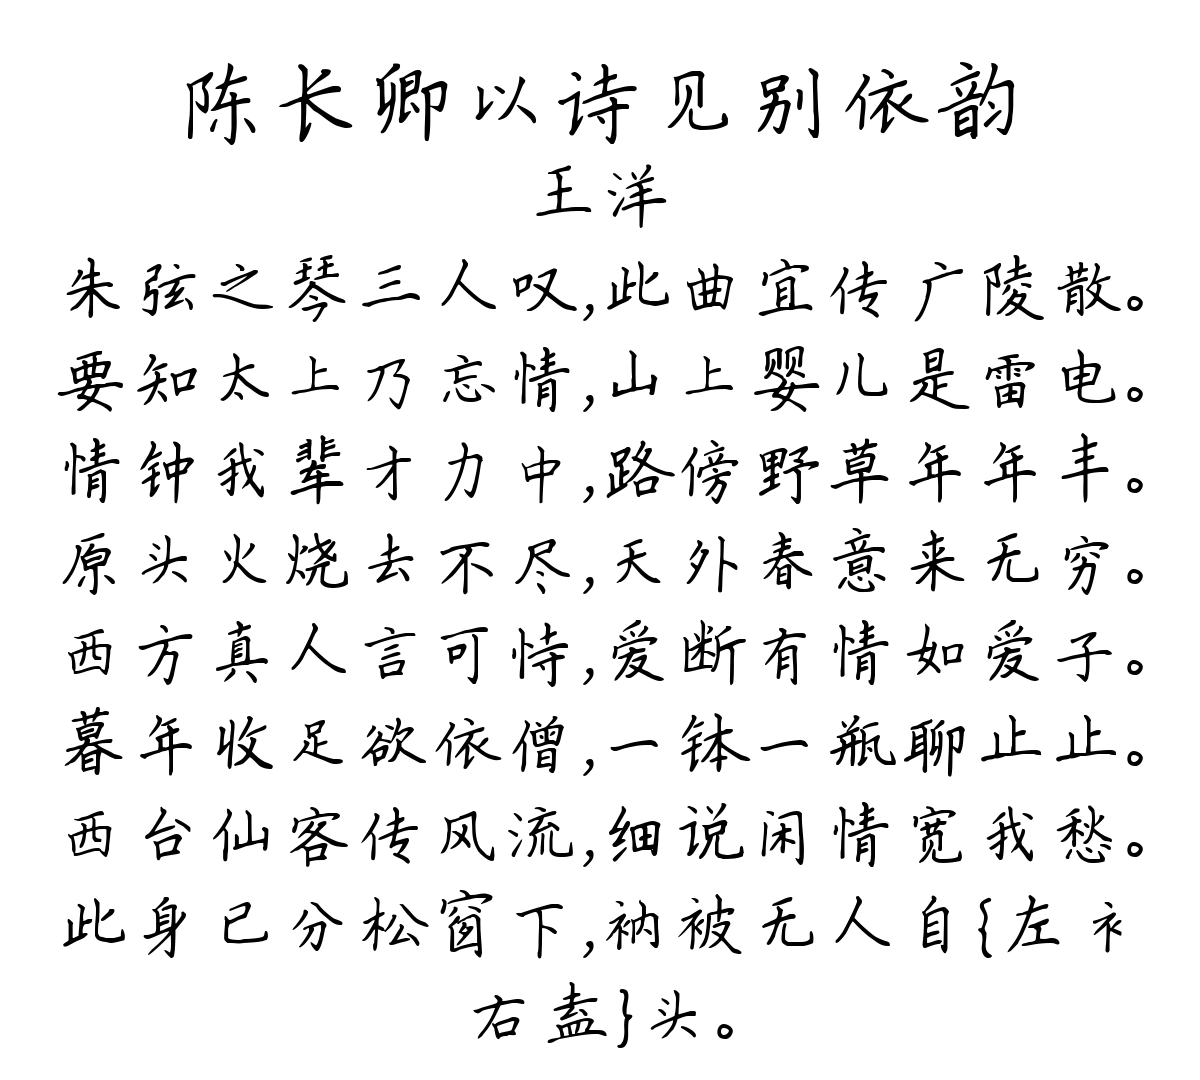 陈长卿以诗见别依韵
王洋
朱弦之琴三人叹,此曲宜传广陵散。
要知太上乃忘情,山上婴儿是雷电。
情钟我辈才力中,路傍野草年年丰。
原头火烧去不尽,天外春意来无穷。
西方真人言可恃,爱断有情如爱子。
暮年收足欲依僧,一钵一瓶聊止止。
西台仙客传风流,细说闲情宽我愁。
此身已分松窗下,衲被无人自{左衤
右盍}头。